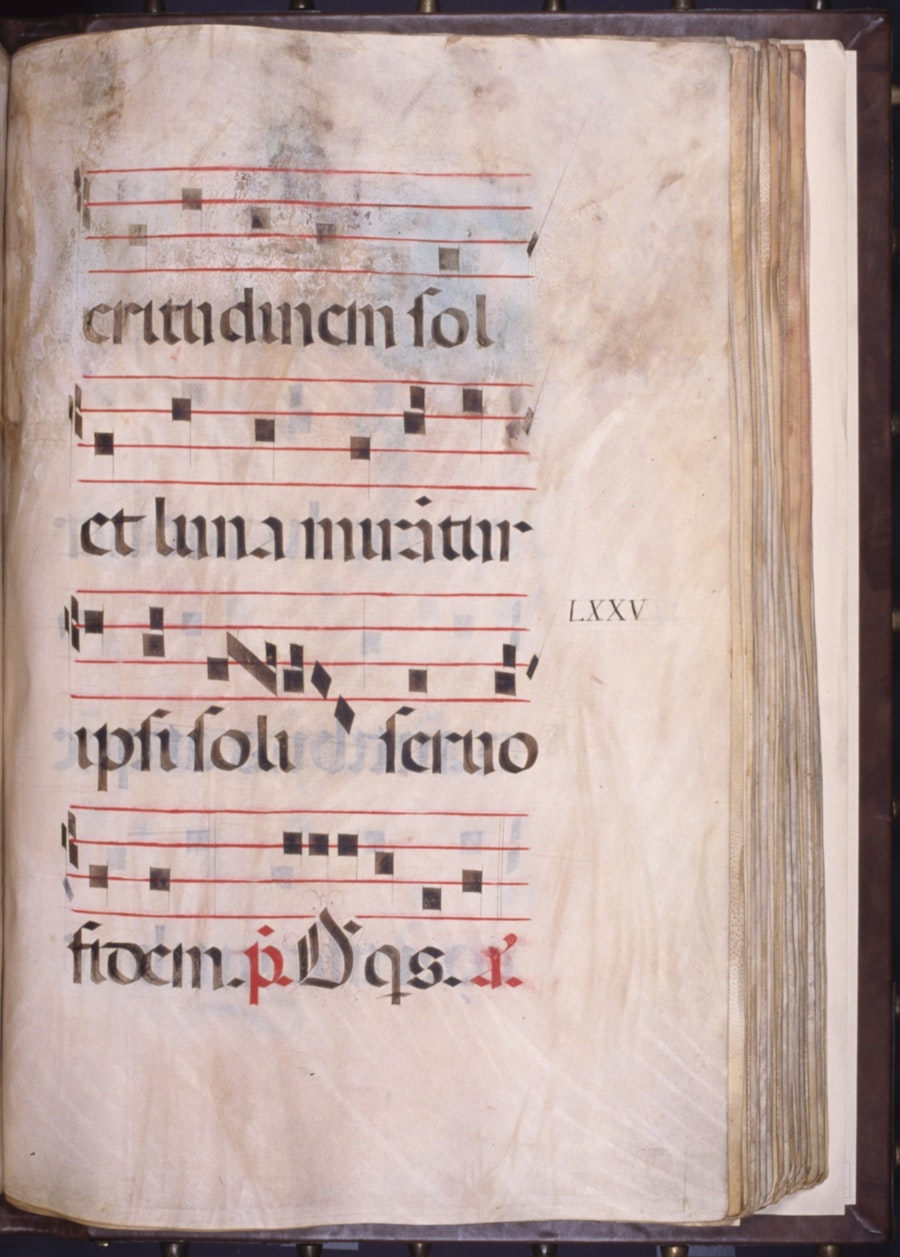 critudinem sol
et luna mirãtur
LXXV
ipsi soli servo
fidem. p̃. D̃ qs.